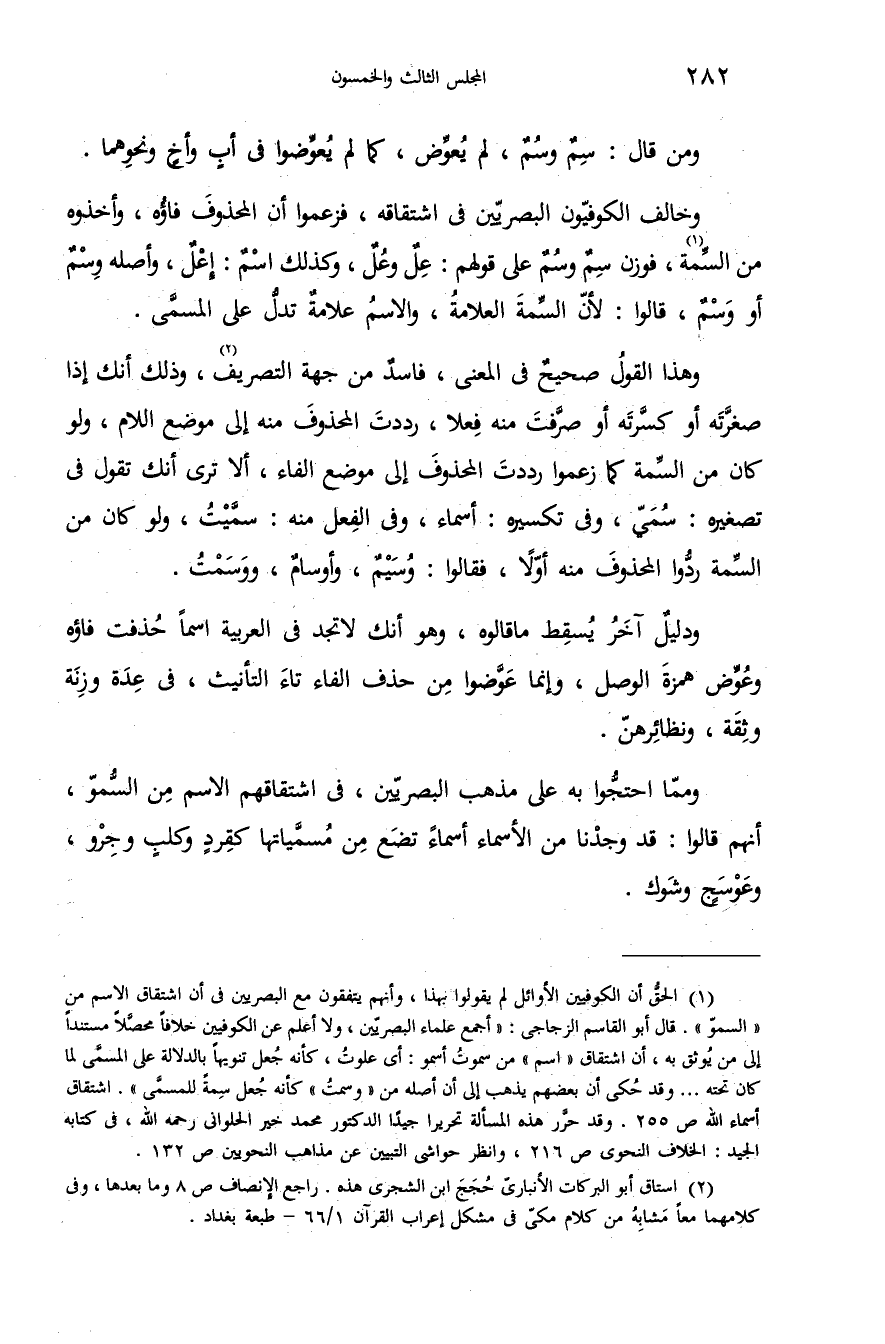 ٢٨٢ المجلس الثالث والخمسون
ومن قال : سِمٌ وسُمٌ ، لم يُعوِّض ، كما لم يُعوِّضوا فى أبٍ وأخٍ ونحوِهما .
وخالف الكوفيّون البصريّين فى اشتقاقه ، فزعموا أن المحذوفَ فاؤُه ، وأخذوه
من السِّمة (١) ، فوزن سِمٌ وسُمٌ على قولهم : عِلٌ وعُلٌ ، وكذلك اسْمٌ : إعْلٌ ، وأصله وِسْمٌ
أو وَسْمٌ ، قالوا : لأنّ السِّمةَ العلامةُ ، والاسمُ علامةٌ تدلُّ على المسمَّى .
وهذا القولُ صحيحٌ فى المعنى ، فاسدٌ من جهة التصريف (٢) ، وذلك أنك إذا
صغرَّتَه أو كسَّرتَه أو صرَّفتَ منه فِعلا ، رددتَ المحذوفَ منه إلى موضع اللام ، ولو
كان من السِّمة كما زعموا رددتَ المحذوفَ إلى موضع الفاء ، ألا ترى أنك تقول فى
تصغيره : سُمَيّ ، وفى تكسيره : أسماء ، وفى الفِعل منه : سمَّيْتُ ، ولو كان من
السِّمة ردُّوا المحذوفَ منه أوّلًا ، فقالوا : وُسَيْمٌ ، وأوسامٌ ، ووَسَمْتُ .
ودليلٌ آخَرُ يُسقِط ماقالوه ، وهو أنك لاتجد فى العربية اسماً حُذفت فاؤه
وعُوِّض همزةَ الوصل ، وإنما عَوَّضوا مِن حذف الفاء تاءَ التأنيث ، فى عِدَة وزِنَة
وثِقَة ، ونظائِرهنّ .
وممّا احتجُّوا به على مذهب البصريّين ، فى اشتقاقهم الاسم مِن السُّموّ ،
أنهم قالوا : قد وجدْنا من الأسماء أسماءً تضَع مِن مُسمَّياتها كقِردٍ وكلبٍ وجِرْو ،
وعَوْسَجٍ وشَوك .
(١) الحقُّ أن الكوفيين الأوائل لم يقولوا بهذا ، وأنهم يتفقون مع البصريين فى أن اشتقاق الاسم من
« السموّ » . قال أبو القاسم الزجاجى : « أجمع علماء البصريّين ، ولا أعلم عن الكوفيين خلافاً محصَّلاً مستنداً
إلى من يُوثق به ، أن اشتقاق « اسم » من سموتُ أسمو : أى علوتُ ، كأنه جُعل تنويهاً بالدلالة على المسمَّى لما
كان تحته ... وقد حُكى أن بعضهم يذهب إلى أن أصله من « وسمتُ » كأنه جُعل سِمةً للمسمَّى » . اشتقاق
أسماء الله ص ٢٥٥ . وقد حرَّر هذه المسألة تحريرا جيدًا الدكتور محمد خير الحلوانى رحمه الله ، فى كتابه
الجيد : الخلاف النحوى ص ٢١٦ ، وانظر حواشى التبيين عن مذاهب النحويين ص ١٣٢ .
(٢) استاق أبو البركات الأنبارىّ حُجَجَ ابن الشجرى هذه . راجع الإنصاف ص ٨ وما بعدها ، وفى
كلامهما معاً مَشابِهُ من كلام مكىّ فى مشكل إعراب القرآن ٦٦/١ – طبعة بغداد .